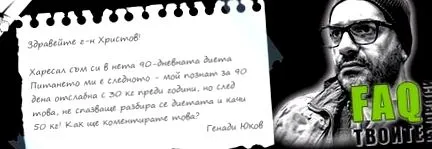 Здравейте г-н Христов!
Харесал съм си в нета 90-дневната диета
Питането ми е следното - мой познат за 90
дена отслабна с 30 кг преди години, но след
това, не спазваще разбира се диетата и качи
50 кг! Как ще коментирате това?
Генади Юков
FAQ
ТВОЙТЕ